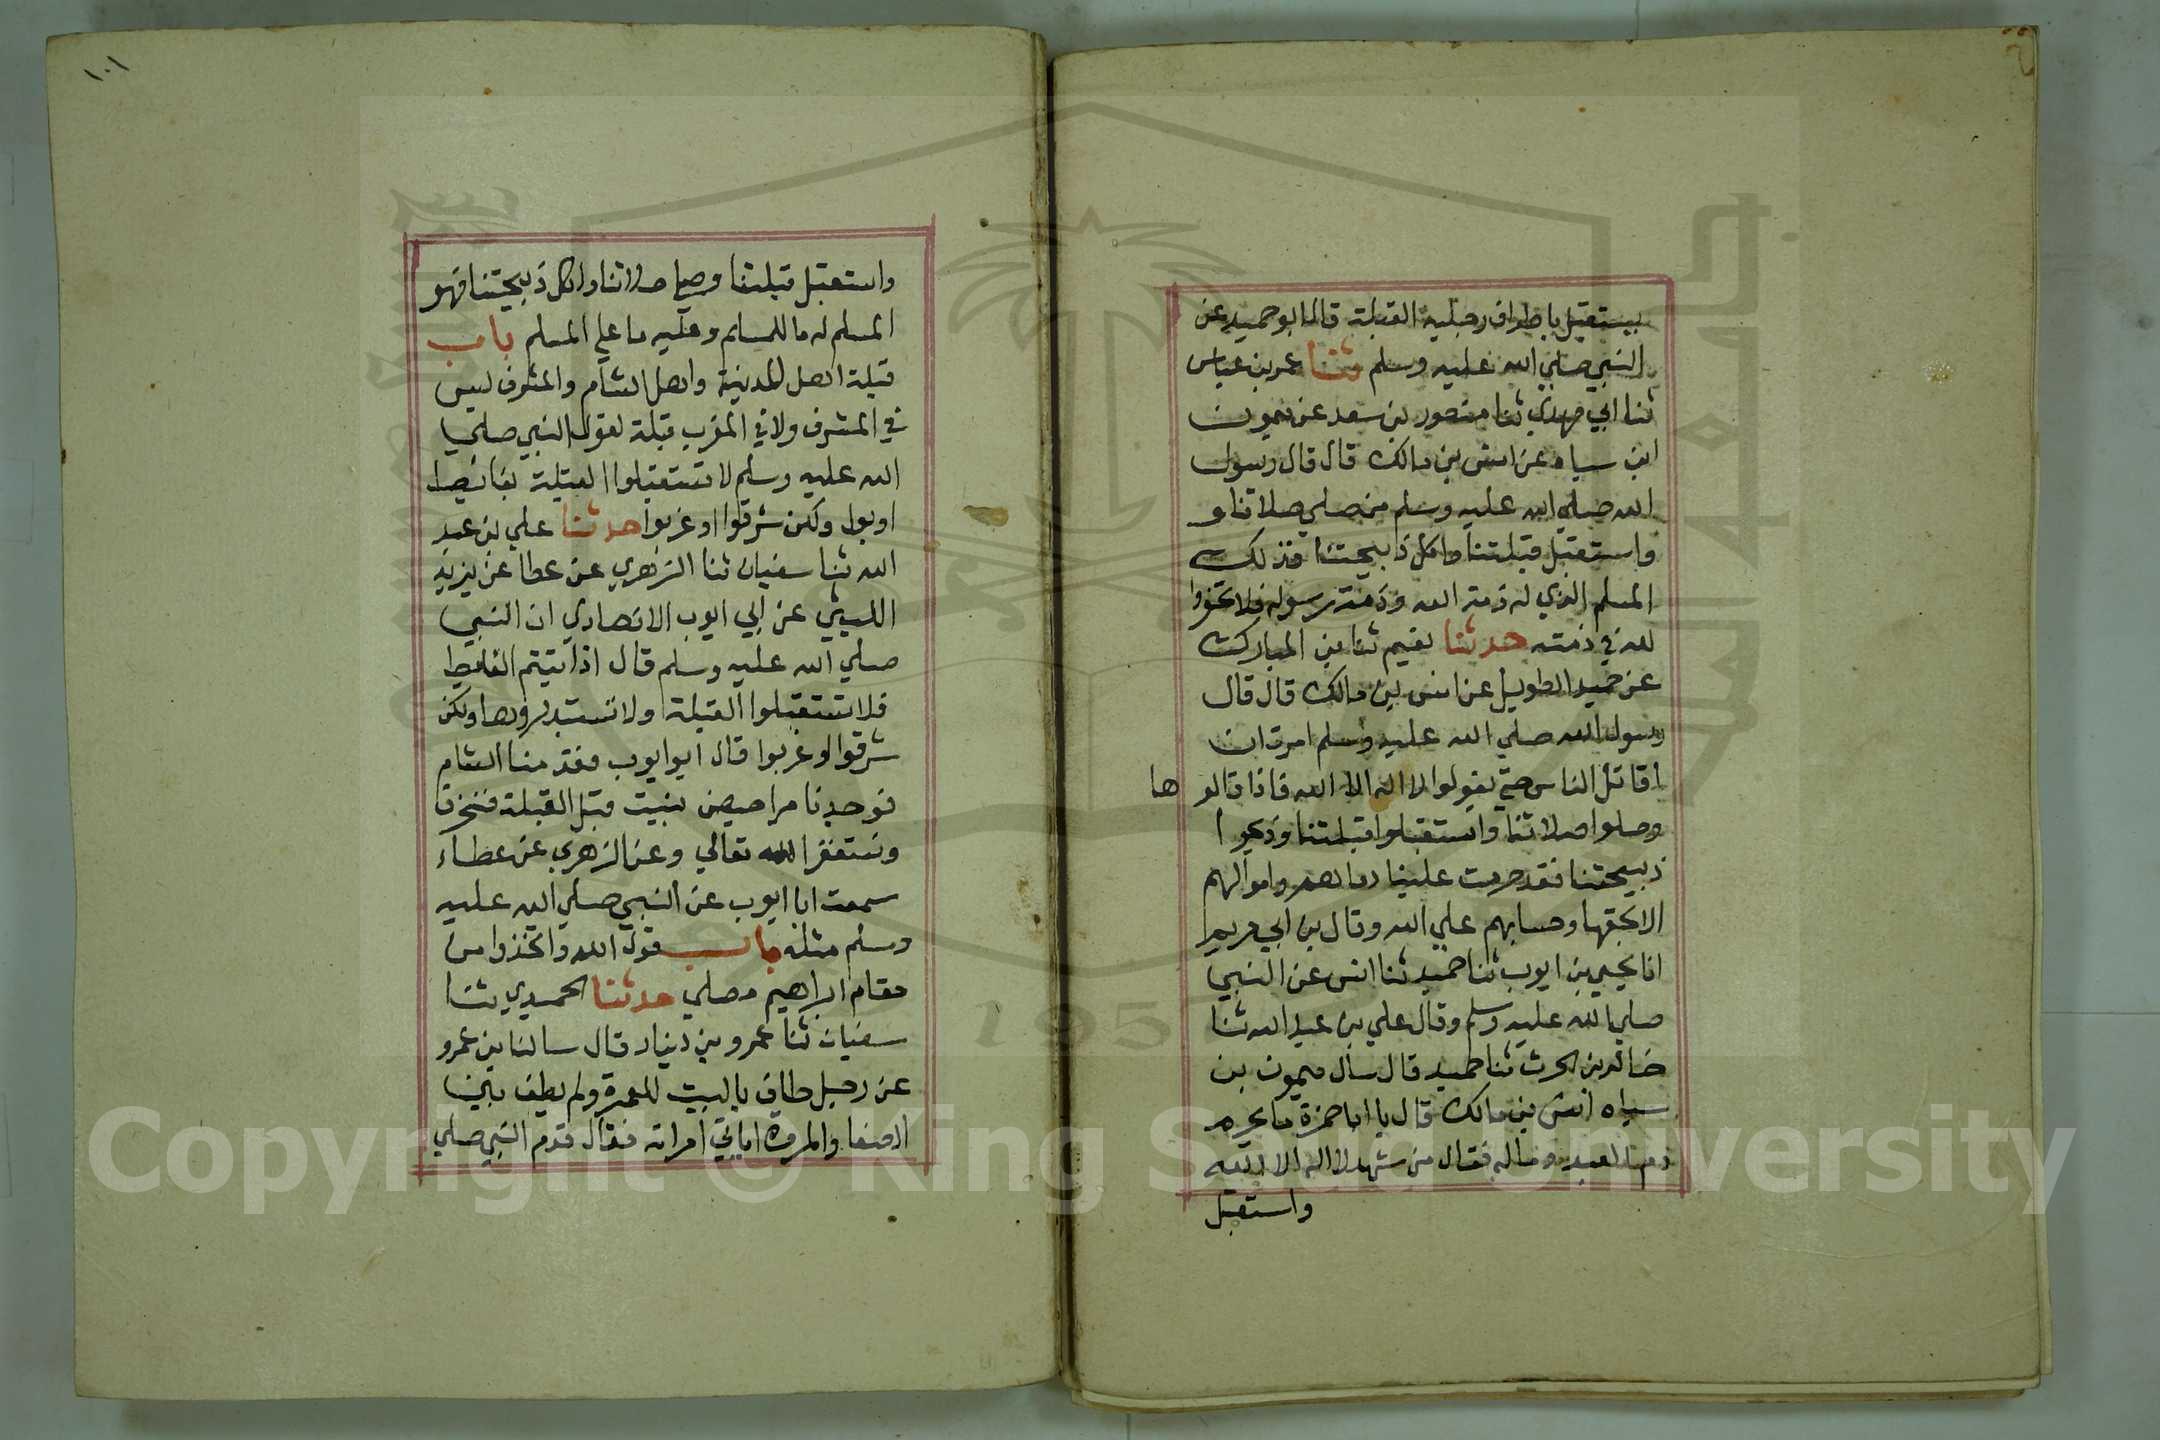 يستقبل باطراف رجليه القبلة قاله ابو حميد عن
النبي صلي الله عليه وسلم ثنا عمر بن عباس
ثنا ابي مهدي ثنا منصور بن سعد عن ميمون
ابن سياه عن انس بن مالك قال قال رسول
الله صلي الله عليه وسلم من صلي صلاتنا و
واستقبل قبلتنا واكل ذبيحتنا فذلك
المسلم الذي له ذمة الله وذمة رسوله فلا تخفروا
لله في ذمته حدثنا نعيم ثنا بن المبارك
عن حميد الطويل عن انس بن مالك قال قال
رسول الله صلي الله عليه وسلم امرت ان
اقاتل الناس حتي يقولوا لا اله الا الله فاذا قالو ها
وصلوا صلاتنا واستقبلوا قبلتنا وذبحوا
ذبيحتنا فقد حرمت علينا دماءهم واموالهم
الا بحقها وحسابهم علي الله وقال بن ابي مريم
انا يحيي بن ايوب ثنا حميد ثنا انس عن النبي
صلي الله عليه وسلم وقال علي بن عبد الله ثنا
خالد بن الحرث ثنا حميد قال سأل ميمون بن
سياه انس بن مالك قال يا ابا حمزة ما يحرم
دم العبد وماله فقال من شهد لا اله الا الله
واستقبل
١٠١
واستقبل قبلتنا وصلي صلاتنا واكل ذبيحتنا فهو
المسلم له ما للمسلم وعليه ما علي المسلم باب
قبلة اهل المدينة واهل الشام والمشرق ليس
في المشرق ولا في المغرب قبلة لقول النبي صلي
الله عليه وسلم لا تستقبلوا القبلة بغائط
او بول ولكن شرقوا او غربوا حدثنا علي بن عبد
الله ثنا سفيان ثنا الزهري عن عطا عن يزيد
الليثي عن ابي ايوب الانصاري ان النبي
صلي الله عليه وسلم قال اذا اتيتم الغايط
فلا تستقبلوا القبلة ولا تستدبروها ولكن
شرقوا او غربوا قال ابو ايوب فقدمنا الشام
فوجدنا مراحيض بنيت قبل القبلة فننحرف
ونستغفر الله تعالي وعن الزهري عن عطاء
سمعت ابا ايوب عن النبي صلي الله عليه
وسلم مثله باب قول الله واتخذوا من
مقام ابراهيم مصلي حدثنا الحميدي ثنا
سفيان ثنا عمرو بن دينار قال سالنا بن عمرو
عن رجل طاف بالبيت للعمرة ولم يطف بين
الصفا والمروة اياتي امراته فقال قدم النبي صلي
Copyright © King Saud University
1957